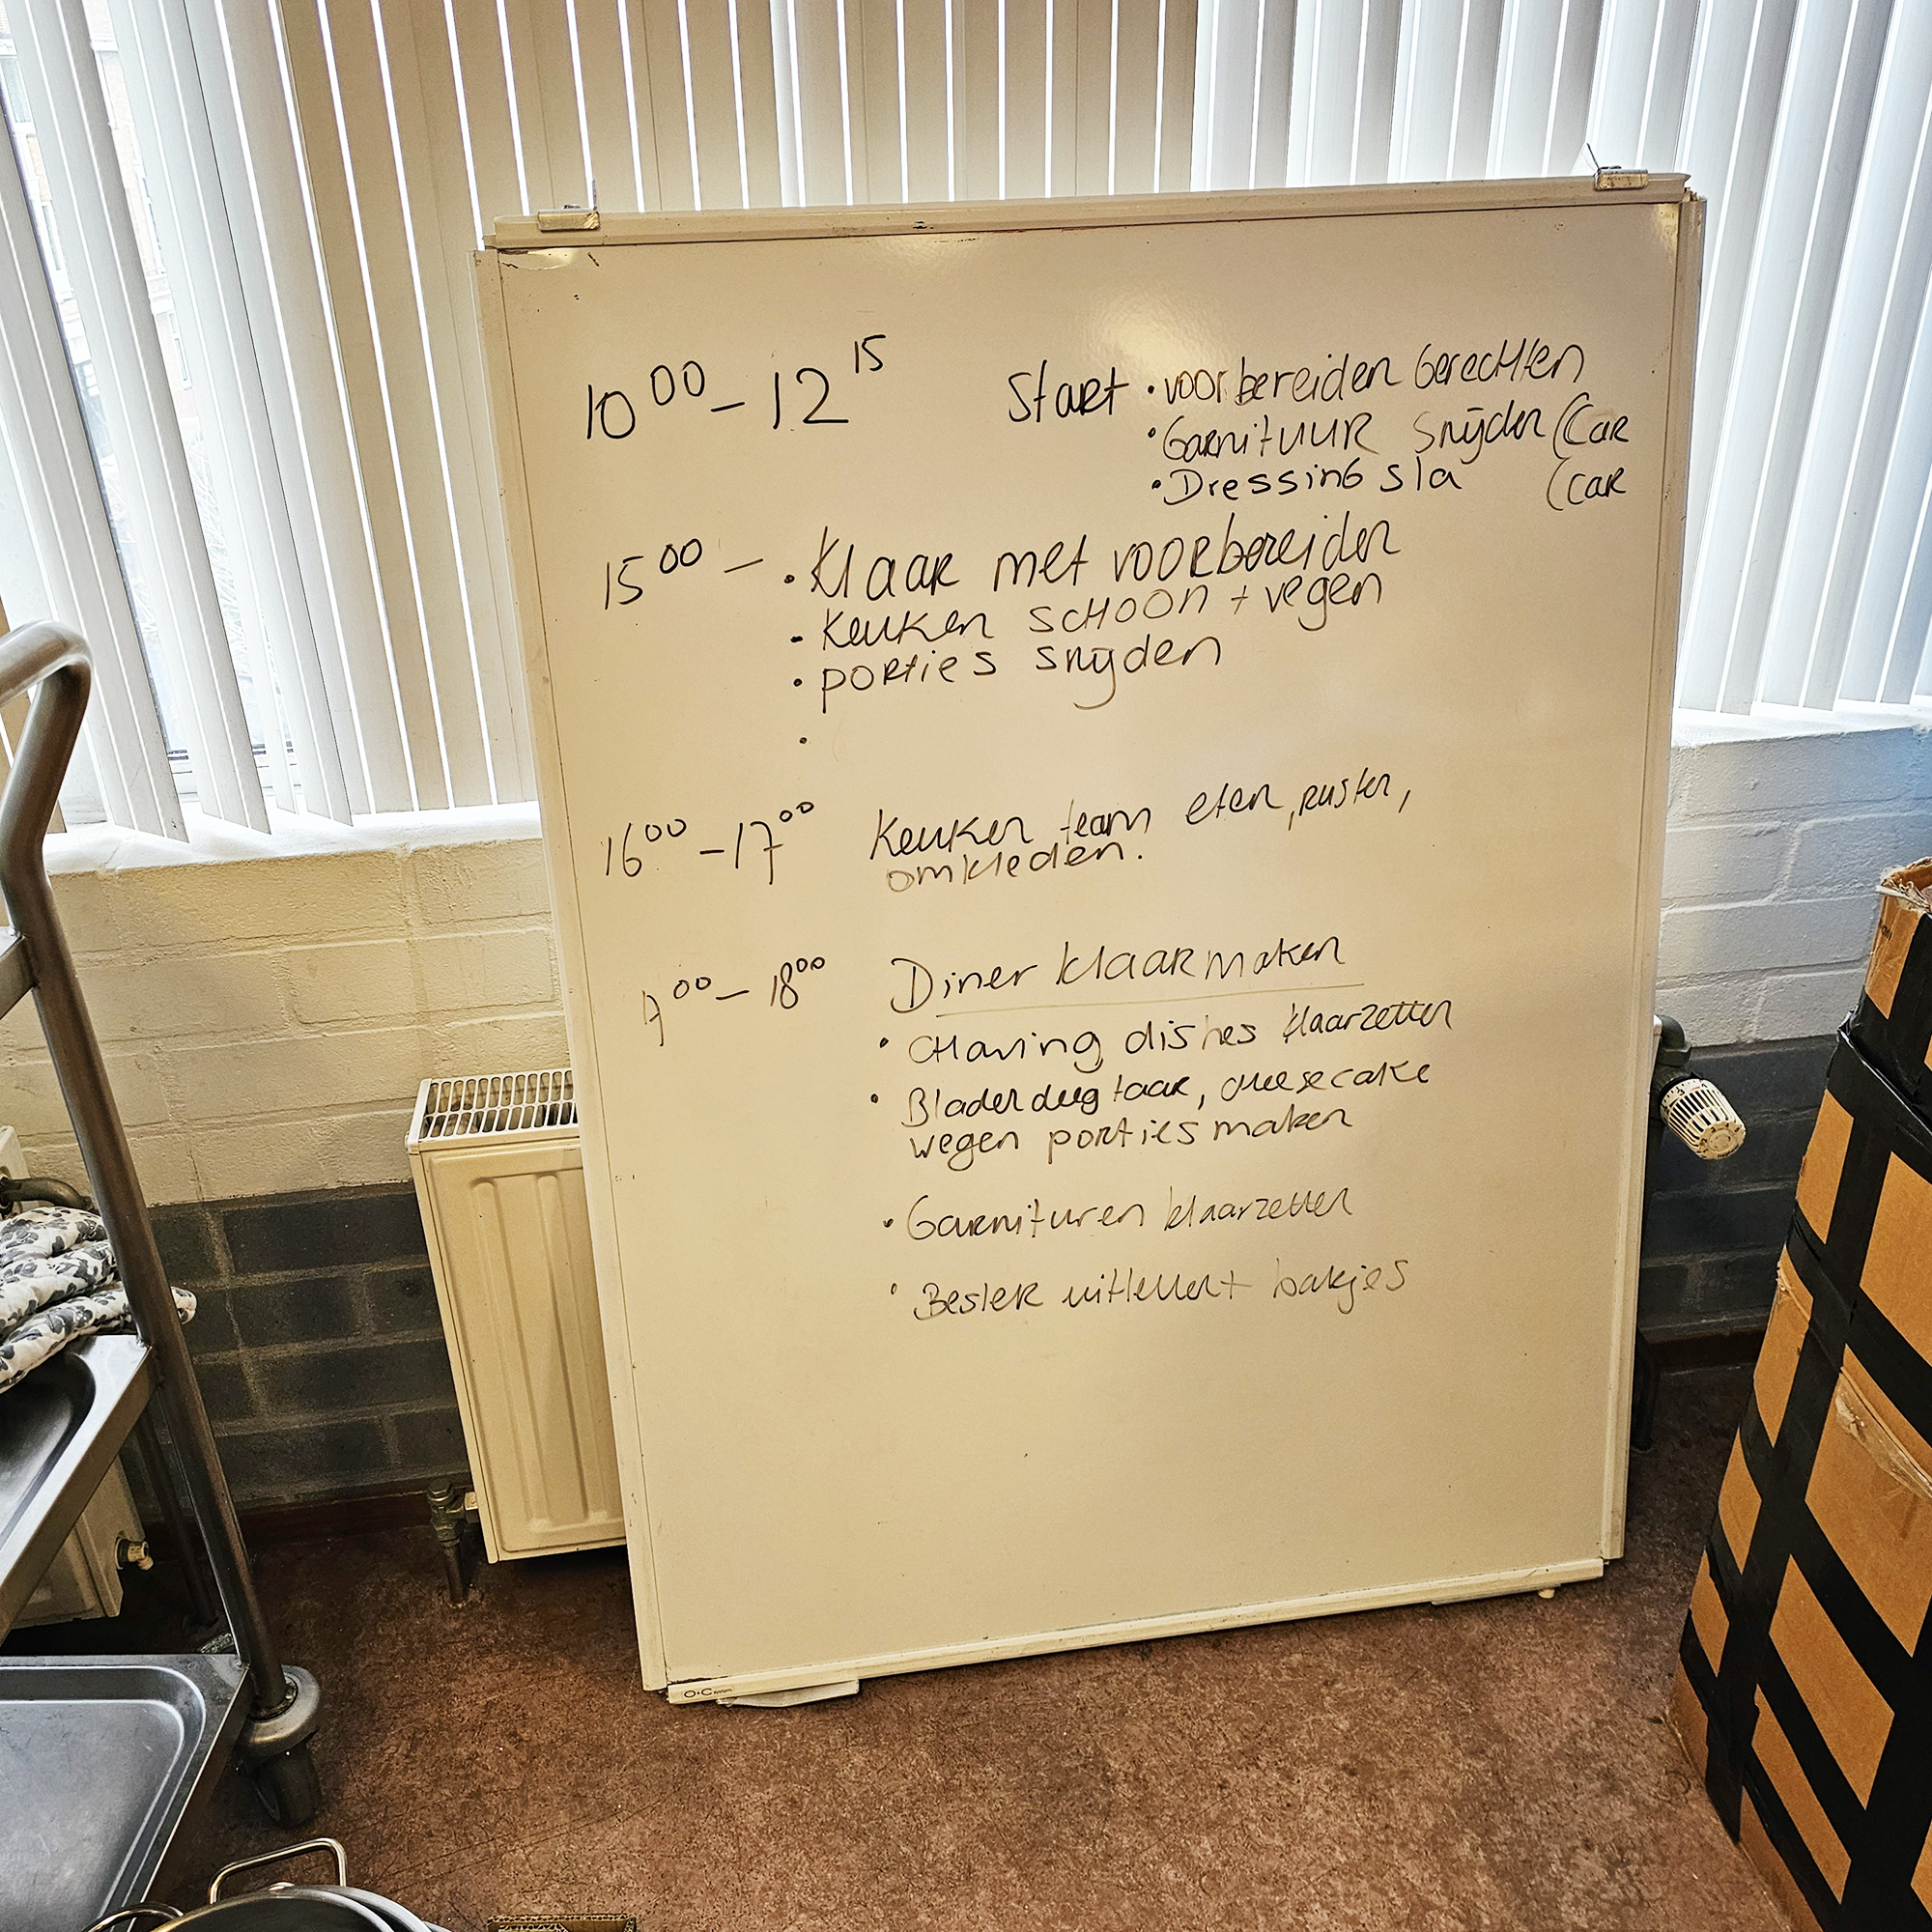 10⁰⁰ - 12¹⁵ Start • voorbereiden Gerechten
• Garnituur snijden (Car
• Dressing sla (Car
15⁰⁰ - • Klaar met voorbereiden
- Keuken schoon + vegen
• porties snijden
•
16⁰⁰ - 17⁰⁰ Keuken team eten, rusten,
omkleden.
17⁰⁰ - 18⁰⁰ Diner klaarmaken
• Chaving dishes klaarzetten
• Bladerdeeg taar, cheesecake
wegen porties maken
• Garnituren klaarzetten
• Bestek + bakjes
O·C system